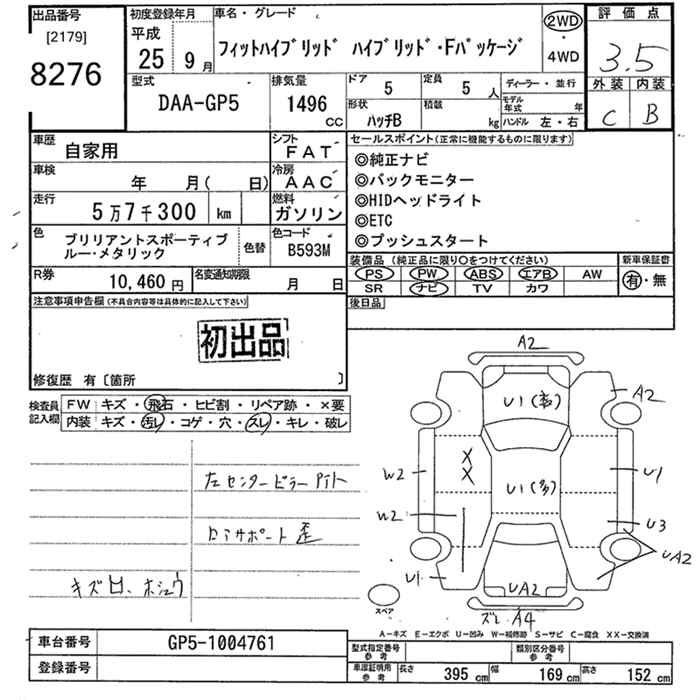 出品番号
[2179]
8276
初度登録年月
平成
25年9月
車名・グレード
フィットハイブリッド ハイブリッド・Fパッケージ
2WD
・
4WD
評価点
3.5
外装 内装
C B
型式
DAA-GP5
排気量
1496
CC
ドア
5
定員
5人
形状
ハッチB
積載
kg
ディーラー・並行
モデル年式 年
ハンドル 左・右
車歴
自家用
シフト
FAT
車検
年 月( 日)
冷房
AAC
走行
5万7千300 km
燃料
ガソリン
色
ブリリアントスポーティブ
ルー・メタリック
色替
色コード
B593M
R券
10,460円
名変通知期限
月 日
セールスポイント(正常に機能するものに限ります)
◎純正ナビ
◎バックモニター
◎HIDヘッドライト
◎ETC
◎プッシュスタート
装備品(純正品に限り○をつけてください)
PS PW ABS エアB AW
SR ナビ TV カワ
新車保証書
有・無
後日品
注意事項申告欄(不具合内容等は具体的に記入して下さい)
初出品
修復歴 有〔箇所 〕
検査員記入欄
FW キズ・飛石・ヒビ割・リペア跡・×要
内装 キズ・汚レ・コゲ・穴・スレ・キレ・破レ
左センターピラー
コアサポート歪
キズ凹、ホシュウ
A2
U1(多)
A2
X
X
W2
U1(多)
U1
W2
U3
UA2
U1
UA2
スペア
ズレ A4
A-キズ E-エクボ U-凹み W-補修跡 S-サビ C-腐食 XX-交換済
車台番号
GP5-1004761
登録番号
型式指定番号参考
類別区分番号参考
車庫証明用参考
長さ 395 cm
幅 169 cm
高さ 152 cm